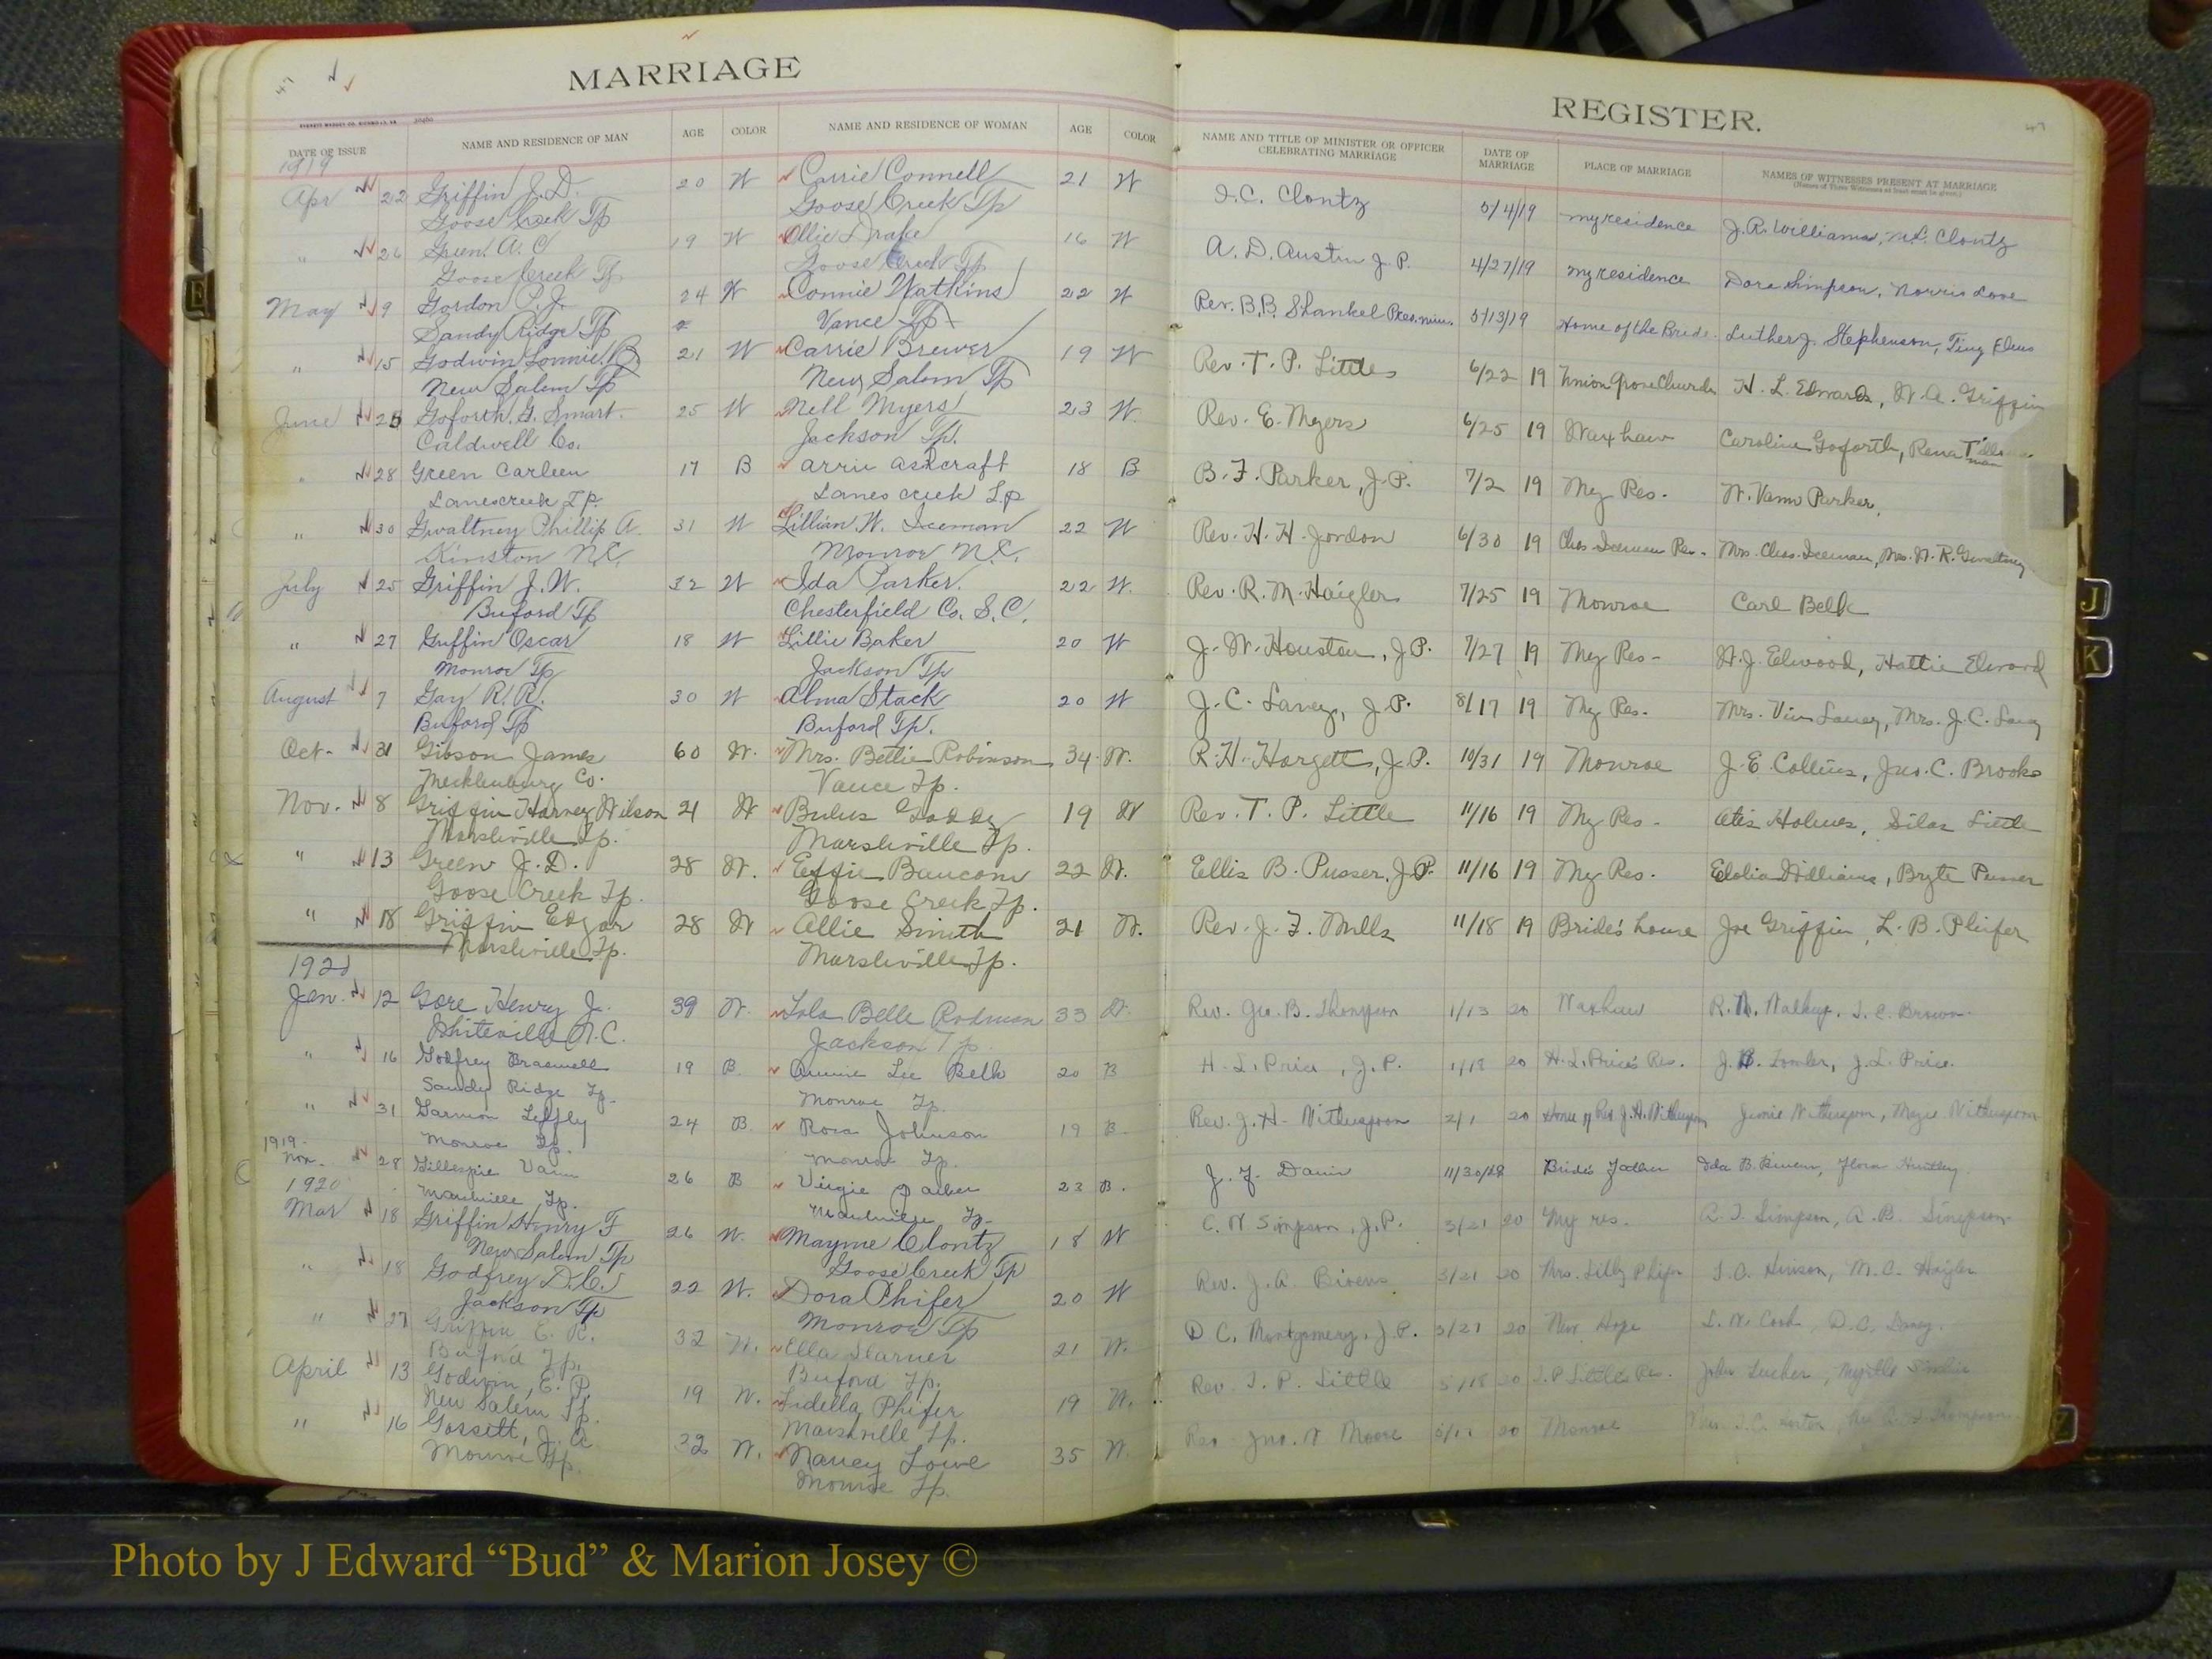 MARRIAGE
REGISTER.
47
47
EVERETT WADDEY CO. RICHMOND, VA
DATE OF ISSUE NAME AND RESIDENCE OF MAN AGE COLOR NAME AND RESIDENCE OF WOMAN AGE COLOR NAME AND TITLE OF MINISTER OR OFFICER CELEBRATING MARRIAGE DATE OF MARRIAGE PLACE OF MARRIAGE NAMES OF WITNESSES PRESENT AT MARRIAGE
(Names of Three Witnesses at least must be given.)
1919
Apr 22 Griffin J. D. 20 W Carrie Connell 21 W I. C. Clontz 5/4/19 my residence J. R. Williams, M. L. Clontz
Goose Creek Tp Goose Creek Tp
" 26 Green A. C 19 W Ollie Drake 16 W A. D. Austin J. P. 4/27/19 my residence Dora Simpson, Norris Love
Goose Creek Tp Goose Creek Tp
May 9 Gordon P. J. 24 W Connie Watkins 22 W Rev. B. B. Shankel Pres. min. 5/13/19 Home of the Bride. Luther J. Stephenson, Tiny
Sandy Ridge Tp Vance Tp
" 15 Godwin Lonnie B 21 W Carrie Brewer 19 W Rev. T. P. Little 6/22 19 Union Grove Church H. L. Edwards, W. A. Griffin
New Salem Tp New Salem Tp
June 25 Goforth G. Smart. 25 W Nell Myers 23 W. Rev. E. Myers 6/25 19 Waxhaw Caroline Goforth, Rena Tillman
Caldwell Co. Jackson Tp.
" 28 Green Carleen 17 B arrie ashcraft 18 B B. F. Parker, J. P. 7/2 19 My Res. W. Vann Parker,
Lanescreek T P. Lanes creek T.p
" 30 Gwaltney Phillip A. 31 W Lillian W. Iceman 22 W Rev. H. H. Jordon 6/30 19 Chas Iceman Res. Mrs. Chas. Iceman, Mrs. W. R. Gwaltney
Kinston N.C. Monroe N.C.
July 25 Griffin J. W. 32 W Ida Parker. 22 W. Rev. R. M. Haigler 7/25 19 Monroe Carl Belk
Buford Tp Chesterfield Co. S. C.
" 27 Griffin Oscar 18 W Lillie Baker 20 W J. W. Houston, J P. 7/27 19 My Res. W. J. Elwood, Hattie
Monroe Tp Jackson Tp
August 7 Gay R. R. 30 W Alma Stack 20 W J. C. Laney, J. P. 8/17 19 My Res. Mrs. Vin Laney, Mrs. J. C. Laney
Buford Tp Buford Tp.
Oct- 31 Gibson James 60 W. Mrs. Bettie Robinson 34 W. R. H. Hargett, J. P. 10/31 19 Monroe J. E. Collins, Jno. C. Brooks
Mecklenburg Co. Vance Tp.
Nov. 8 Griffin Harvey Wilson 21 W Bulus Gaddy 19 W Rev. T. P. Little 11/16 19 My Res - Otis Holmes, Silas Little
Marshville Tp. Marshville Tp.
" 13 Green J. D. 28 W. Effie Baucom 22 W. Ellis B. Pusser, J. P. 11/16 19 My Res. Williams, Bryte Pusser
Goose Creek Tp. Goose Creek Tp.
" 18 Griffin Edgar 28 W Allie Smith 21 W. Rev. J. F. Mills 11/18 19 Bride's house Joe Griffin, L. B. Phifer
Marshville Tp. Marshville Tp.
1920
Jan. 12 Gore Henry Jr. 39 W. Lola Belle Rodman 33 W. Rev. Geo. B. Thompson 1/13 20 Waxhaw R. N. Walkup, T. C. Brown
Whiteville N. C. Jackson Tp
" 16 Godfrey Braswell 19 B. Annie Lee Belk 20 B H. L. Price, J. P. 20 H. L. Price's Res. J. L. Price.
Sandy Ridge Tp. Monroe Tp
" 31 Garmon 24 B Rosa Johnson 19 B Rev. J. H. Witherspoon 2/1 20 Home of Rev J. H. Witherspoon Witherspoon, Witherspoon
Monroe Tp. Monroe Tp.
1919
Nov. 28 Gillespie Vann 26 B Virgie 23 B. J. F. Davis Bride's Father Ida B. Flora Huntley
Marshville Tp. Marshville Tp
1920
Mar 18 Griffin Henry F 26 W. Mayme Clontz 18 W C. N Simpson, J. P. 3/21 20 My res. A. T. Simpson, A. B. Simpson
New Salem Tp Goose Creek Tp
" 18 Godfrey D. C. 22 W. Dora Phifer 20 W Rev. J. A. Bivens 3/21 20 Mrs. Lilly Phifer Hinson, M. C. Haigler
Jackson Tp Monroe Tp
" 27 Griffin E. R. 32 W. Ella 21 W. D. C. Montgomery, J. P. 3/21 20 New Hope L. N. Cook, D. C. Laney.
Buford Tp. Buford Tp.
April 13 Godwin, E. P. 19 W. Lidella Phifer 19 W. Rev. T. P. Little 20 T. P Little's Res. John Tucker, Myrtle
New Salem Tp. Marshville Tp.
" 16 Gossett, J. A 32 W. Nancy Lowe 35 W. Rev Jno. W Moore 20 Monroe
Monroe Tp. Monroe Tp.
E
J
K
Photo by J Edward “Bud” & Marion Josey ©